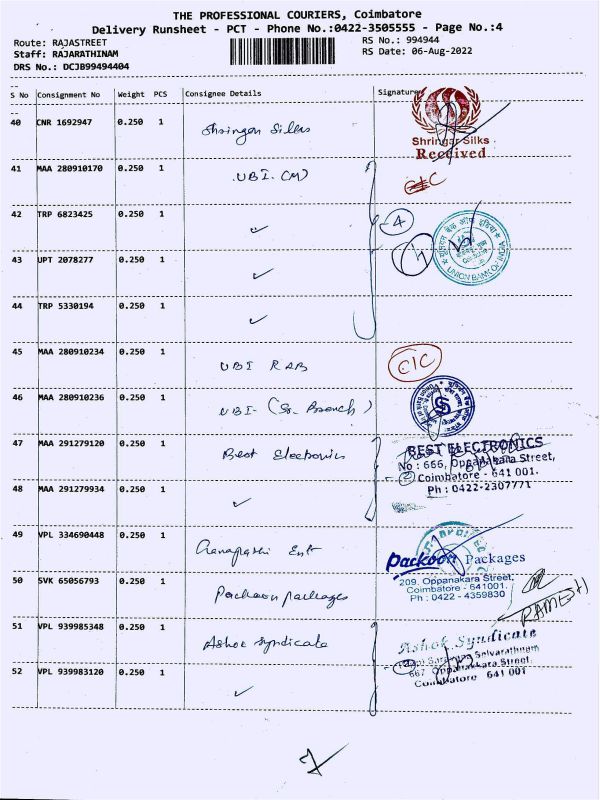 THE PROFESSIONAL COURIERS, Coimbatore
Delivery Runsheet - PCT - Phone No.:0422-3505555 - Page No.:4
Route: RAJASTREET
RS No.: 994944
Staff: RAJARATHINAM
RS Date: 06-Aug-2022
DRS No.: DCJB99494404
S No Consignment No Weight PCS Consignee Details Signature
40 CNR 1692947 0.250 1 Shringar Silks
Shringar Silks
Received
41 MAA 280910170 0.250 1 UBI (M)
CIC
42 TRP 6823425 0.250 1 ✓
4
43 UPT 2078277 0.250 1 ✓
UNION BANK OF INDIA
44 TRP 5330194 0.250 1 ✓
45 MAA 280910234 0.250 1 UBI RAB
CIC
46 MAA 280910236 0.250 1 UBI-
47 MAA 291279120 0.250 1 Best Electronics
BEST ELECTRONICS
No : 666, Oppanakara Street,
Coimbatore - 641 001.
Ph : 0422-2307771
48 MAA 291279934 0.250 1 ✓
49 VPL 334690448 0.250 1 Ganapathi Ent
Packoon Packages
209, Oppanakara Street,
Coimbatore - 641001.
Ph : 0422 - 4359830
50 SVK 65056793 0.250 1 Packoon packages
RAMESH
51 VPL 939985348 0.250 1 Ashok Syndicate
Ashok Syndicate
667 Oppanakkara Street
Coimbatore 641 001
52 VPL 939983120 0.250 1 ✓